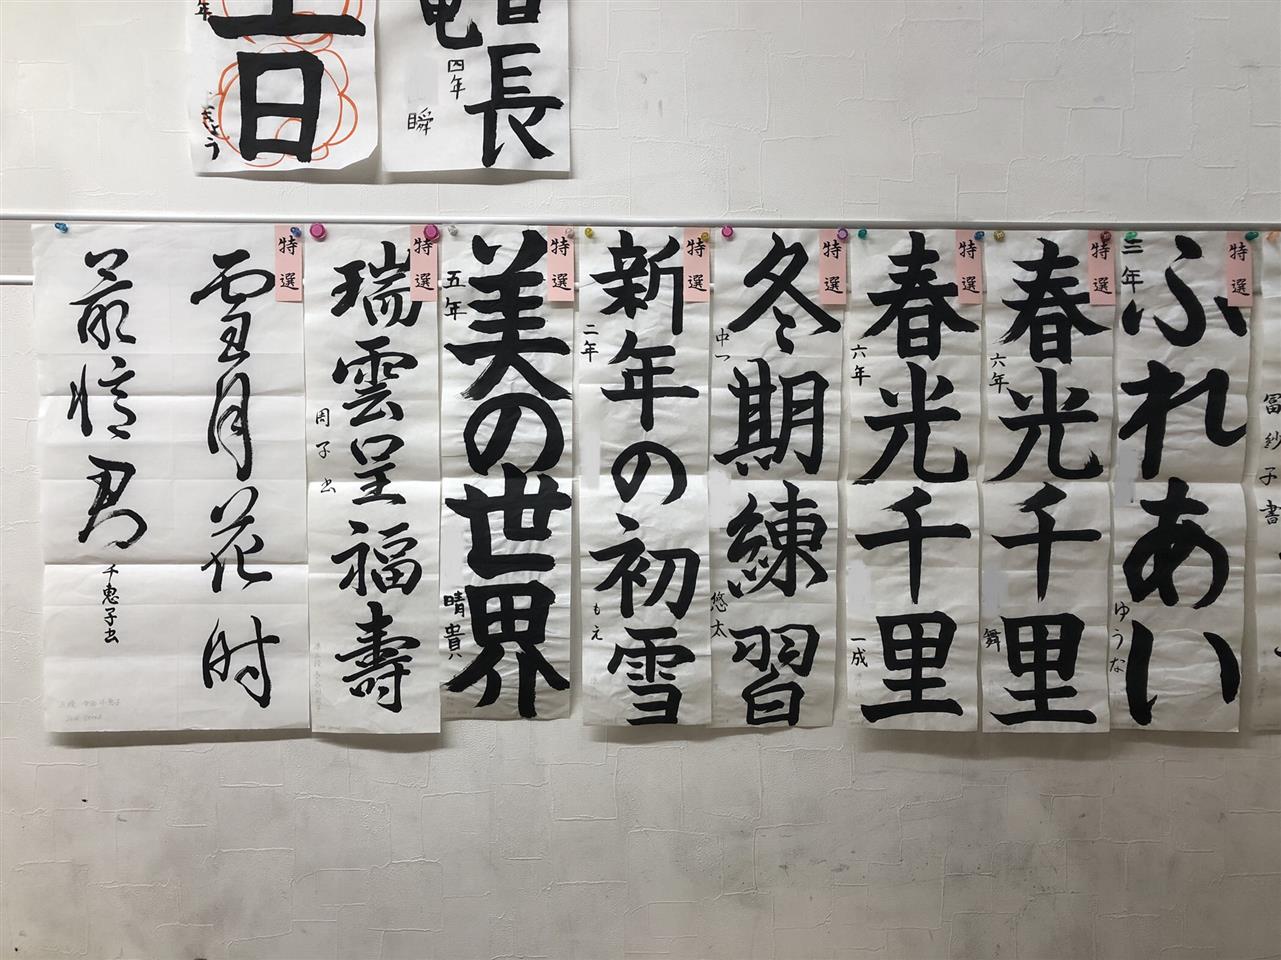 日
年
きょう
長
四年
瞬
特選
ふれあい
三年
ゆうな
特選
春光千里
六年
舞
特選
春光千里
六年
一成
特選
冬期練習
中一
悠太
特選
新年の初雪
二年
もえ
特選
美の世界
五年
晴貴
特選
瑞雲呈福壽
周子书
特選
雪月花时
最憶君
千恵子书
冨紗子書